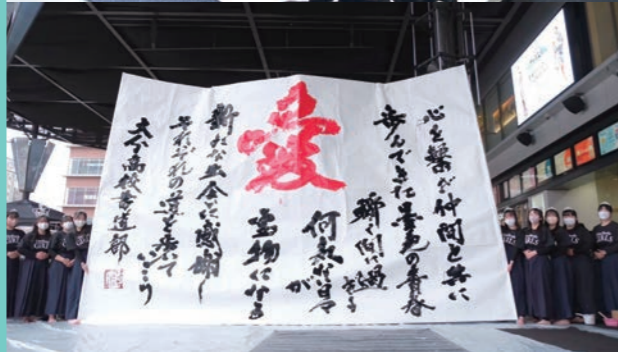 心を繋ぎ仲間と共に
歩んできた墨色の青春
瞬く間に過ぎる
何気ない日々が
宝物になる
愛
新たな出会に感謝し
それぞれの道を歩いていこう
大分高校書道部